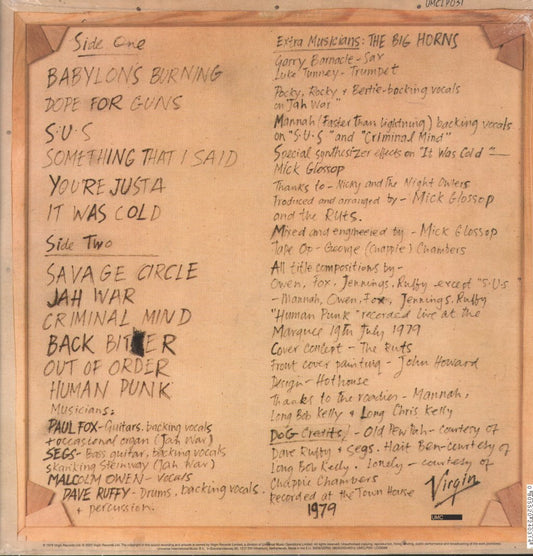 UMCLP031
Side One
BABYLON'S BURNING
DOPE FOR GUNS
S.U.S
SOMETHING THAT I SAID
YOU'RE JUST A
IT WAS COLD
Side Two
SAVAGE CIRCLE
JAH WAR
CRIMINAL MIND
BACK BITER
OUT OF ORDER
HUMAN PUNK
Musicians:
PAUL FOX-Guitars, backing vocals
+ occasional organ (Jah War)
SEGS- Bass guitar, backing vocals
skanking Steinway (Jah War)
MALCOLM OWEN- Vocals
DAVE RUFFY- Drums, backing vocals
+ percussion.
Extra Musicians: THE BIG HORNS
Gary Barnacle - Sax
Luke Tunney - Trumpet
Pocky, Rocky + Bertie-backing vocals
on "Jah War"
Mannah (Faster than lightning) backing vocals
on "S.U.S" and "Criminal Mind"
Special synthesizer effects on "It Was Cold" -
Mick Glossop
Thanks to - Nicky and The Night Owlers
Produced and arranged by - Mick Glossop
and the Ruts.
Mixed and engineered by - Mick Glossop
Tape Op - George (Chappie) Chambers
All title compositions by -
Owen, Fox, Jennings, Ruffy except "S.U.S
- Mannah, Owen, Fox, Jennings, Ruffy
"Human Punk" recorded live at the
Marquee 19th July 1979
Cover concept - The Ruts
Front cover painting - John Howard
Design - Hothouse
Thanks to the roadies - Mannah,
Long Bob Kelly + Long Chris Kelly
DOG Credits/ - Old Pew Pah - courtesy of
Dave Ruffy + Segs. Hait Ben-courtesy of
Long Bob Kelly. Lonely - courtesy of
Chappie Chambers
Recorded at the Town House
1979
Virgin
UMC